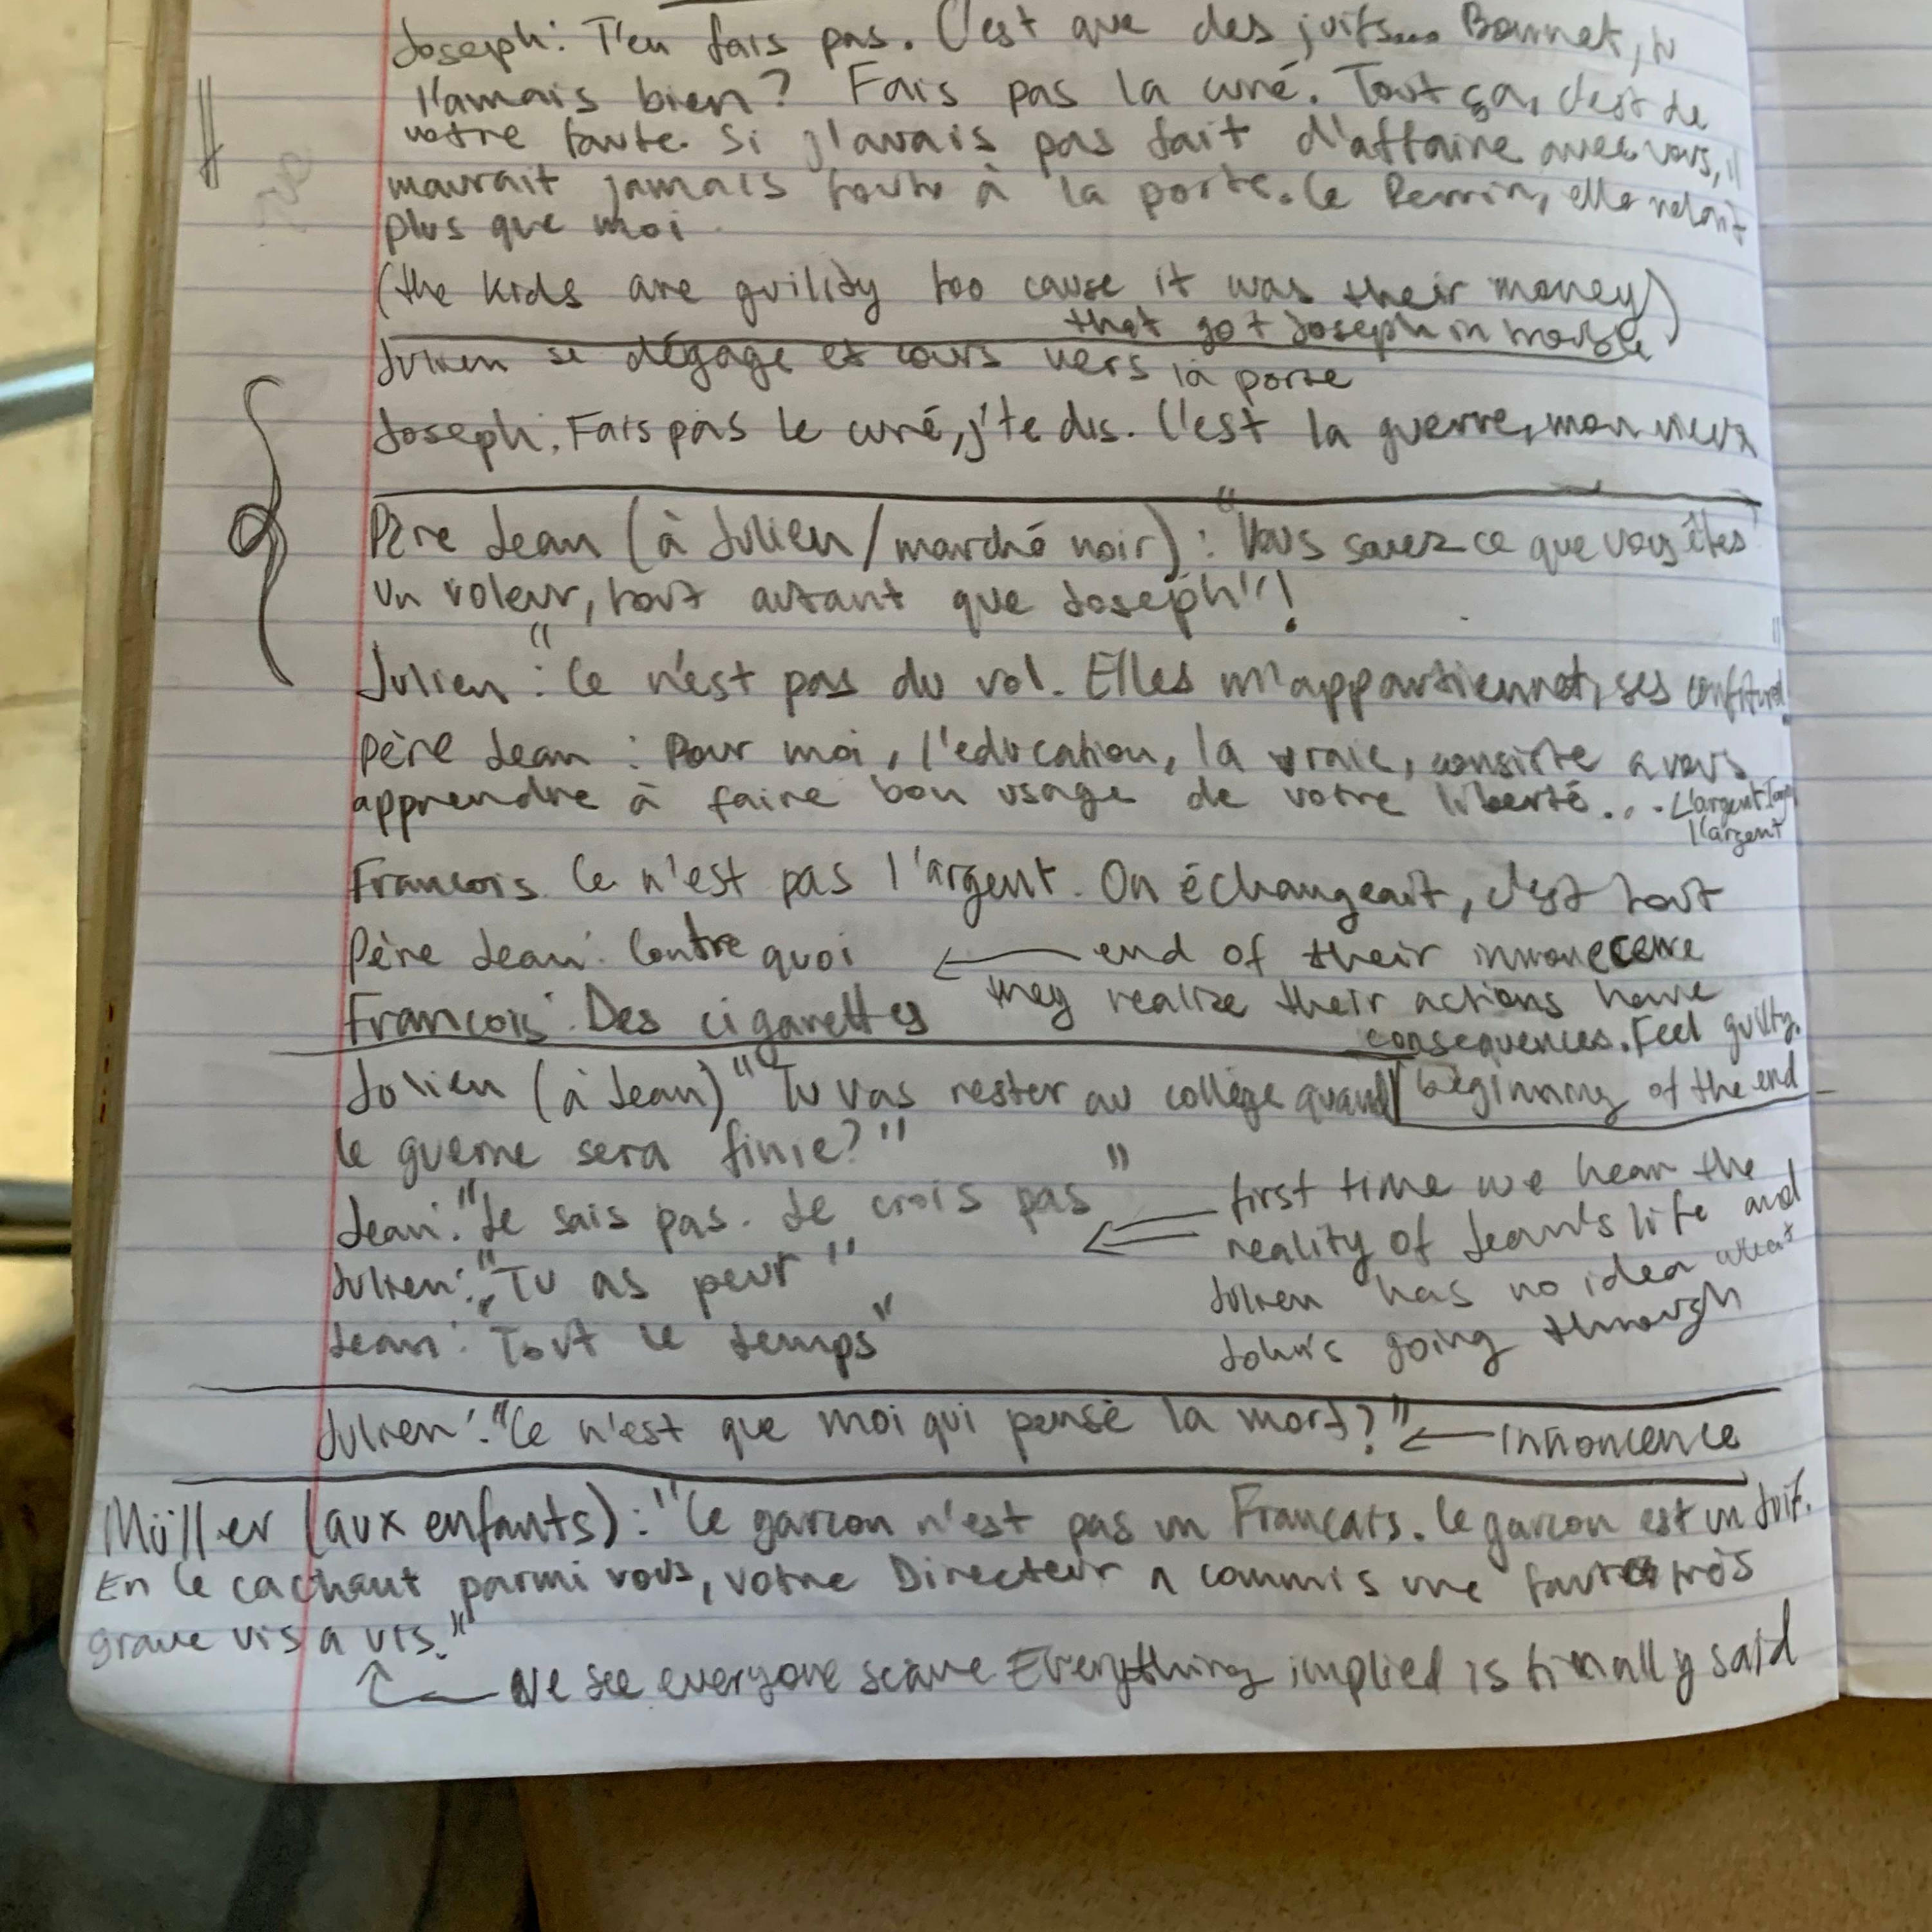 Joseph: T'en fais pas. C'est que des juifs... Bonnet, tu
l'amais bien? Fais pas la curé. Tout ça, c'est de
votre faute. Si j'avais pas fait d'affaire avec vous, il
maurait jamais foutu à la porte. Le Perrin, elle volait
plus que moi
(the kids are guilidy too cause it was their money)
that got Joseph in trouble
Julien se dégage et cours vers la porte
Joseph: Fais pas le curé, j'te dis. C'est la guerre, mon vieux
Père Jean (à Julien/marché noir): "Vous savez ce que vous êtes
un voleur, tout autant que Joseph"!
Julien: "Ce n'est pas du vol. Elles m'appartiennet, ses confitures"
Père Jean: Pour moi, l'education, la vraie, consiste a vous
apprendre à faire bon usage de votre liberté... L'argent
l'argent
Francois. Ce n'est pas l'argent. On échangeait, c'est tout
Père Jean: Contre quoi ← end of their innonecence
Francois: Des cigarettes they realize their actions have
consequences. Feel guilty.
Julien (à Jean) "Tu vas rester au collège quand beginning of the end
le guerre sera finie?"
Jean: "Je sais pas. Je crois pas" ← first time we hear the
reality of Jean's life and
Julien: "Tu as peur" Julien has no idea what
Jean: "Tout le temps" John's going through
Julien: "Ce n'est que moi qui pense la mort?" ← innoncence
Müller (aux enfants): "Ce garcon n'est pas un Francais. Ce garcon est un Juif.
En le cachant parmi vous, votre Directeur a commis une faute très
grave vis a vis."
← We see everyone scare Everything implied is finally said